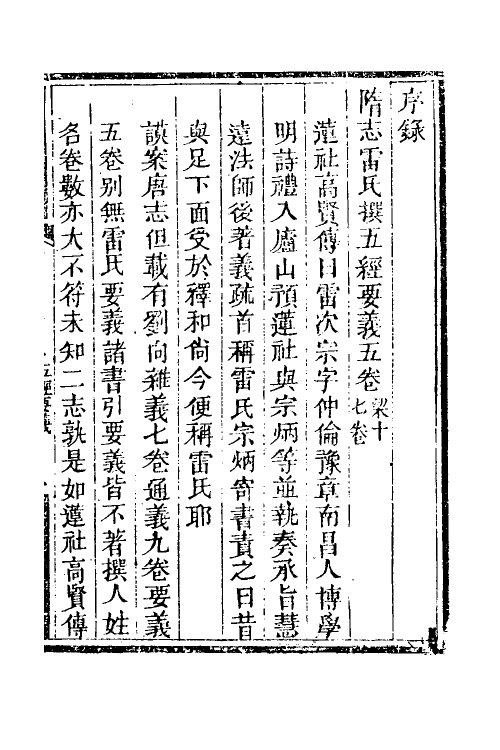 序錄
隋志雷氏撰五經要義五卷梁十七卷
蓮社高賢傳曰雷次宗字仲倫豫章南昌人博學
明詩禮入廬山預蓮社與宗炳等並執奏承旨慧
遠法師後著義疏首稱雷氏宗炳寄書責之曰昔
與足下面受於釋和尙今便稱雷氏耶
謨案唐志但載有劉向雜義七卷通義九卷要義
五卷別無雷氏要義諸書引要義皆不著撰人姓
名卷數亦大不符未知二志孰是如蓮社高賢傳
五經要義